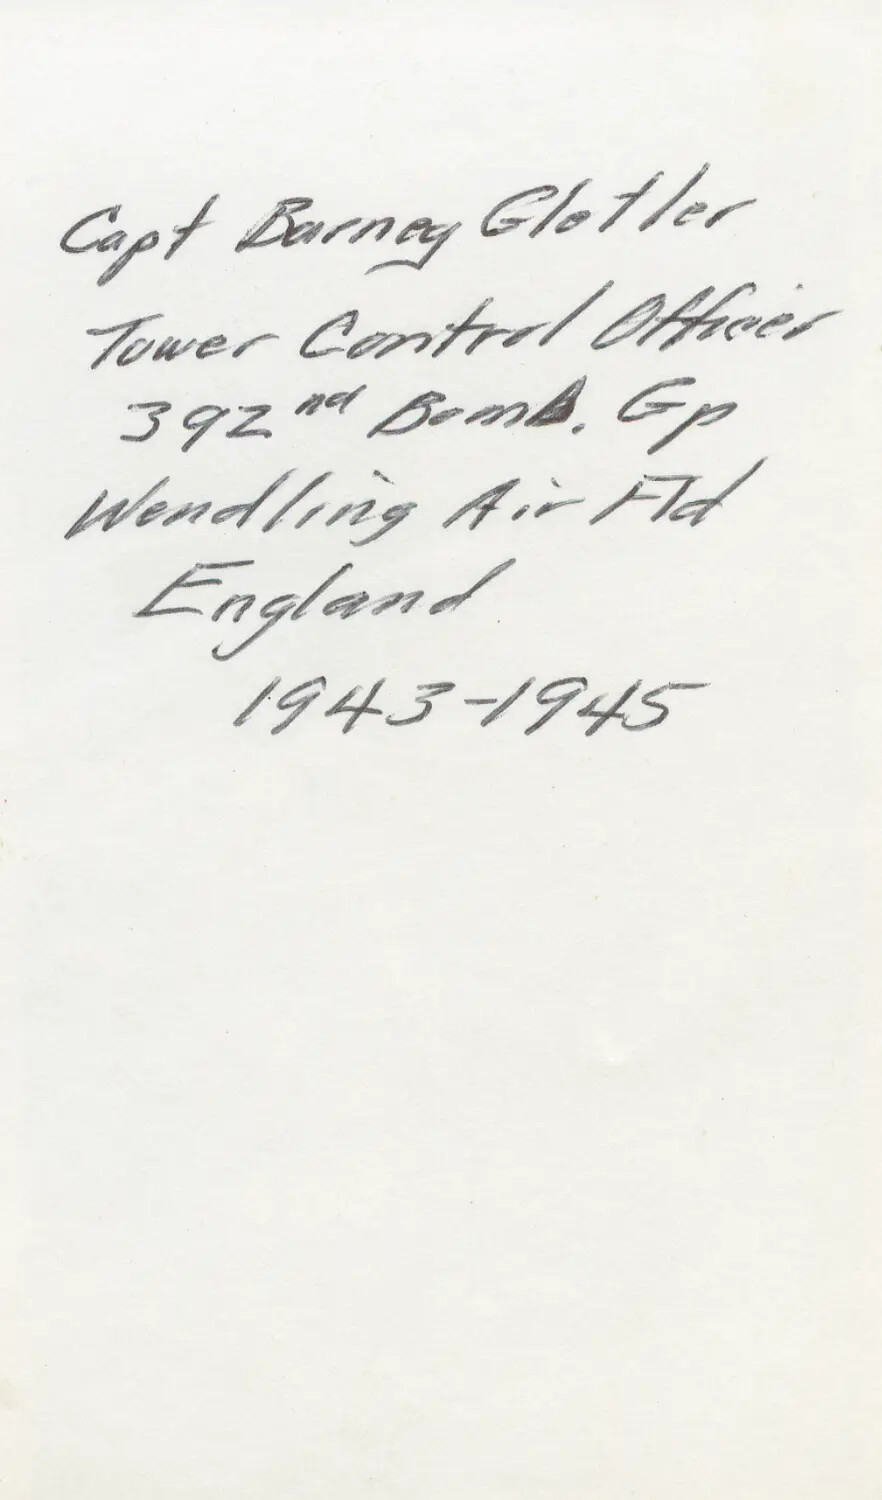 Capt Barney Glotler
Tower Control Officer
392nd Bomb. Gp
Wendling Air Fld
England
1943-1945